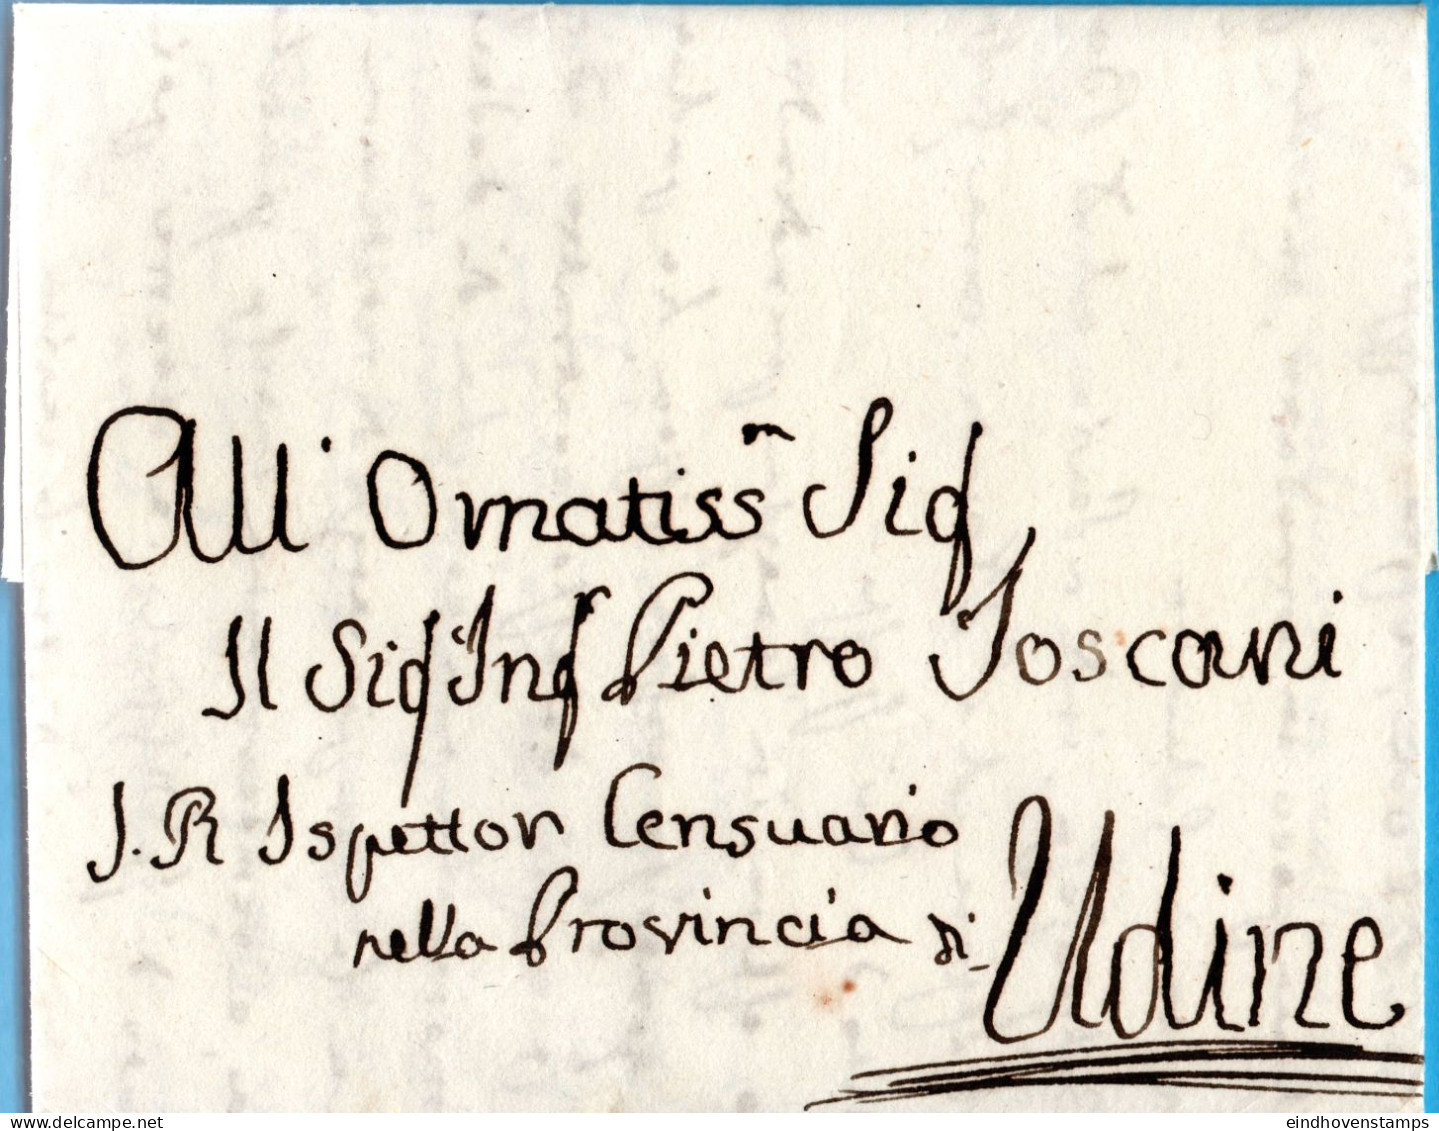 All' Ornatiss.mo Sig
Il Sig Ing Pietro Toscani
I. R Ispettor Censuario
nella Provincia di
Udine
eindhovenstamps